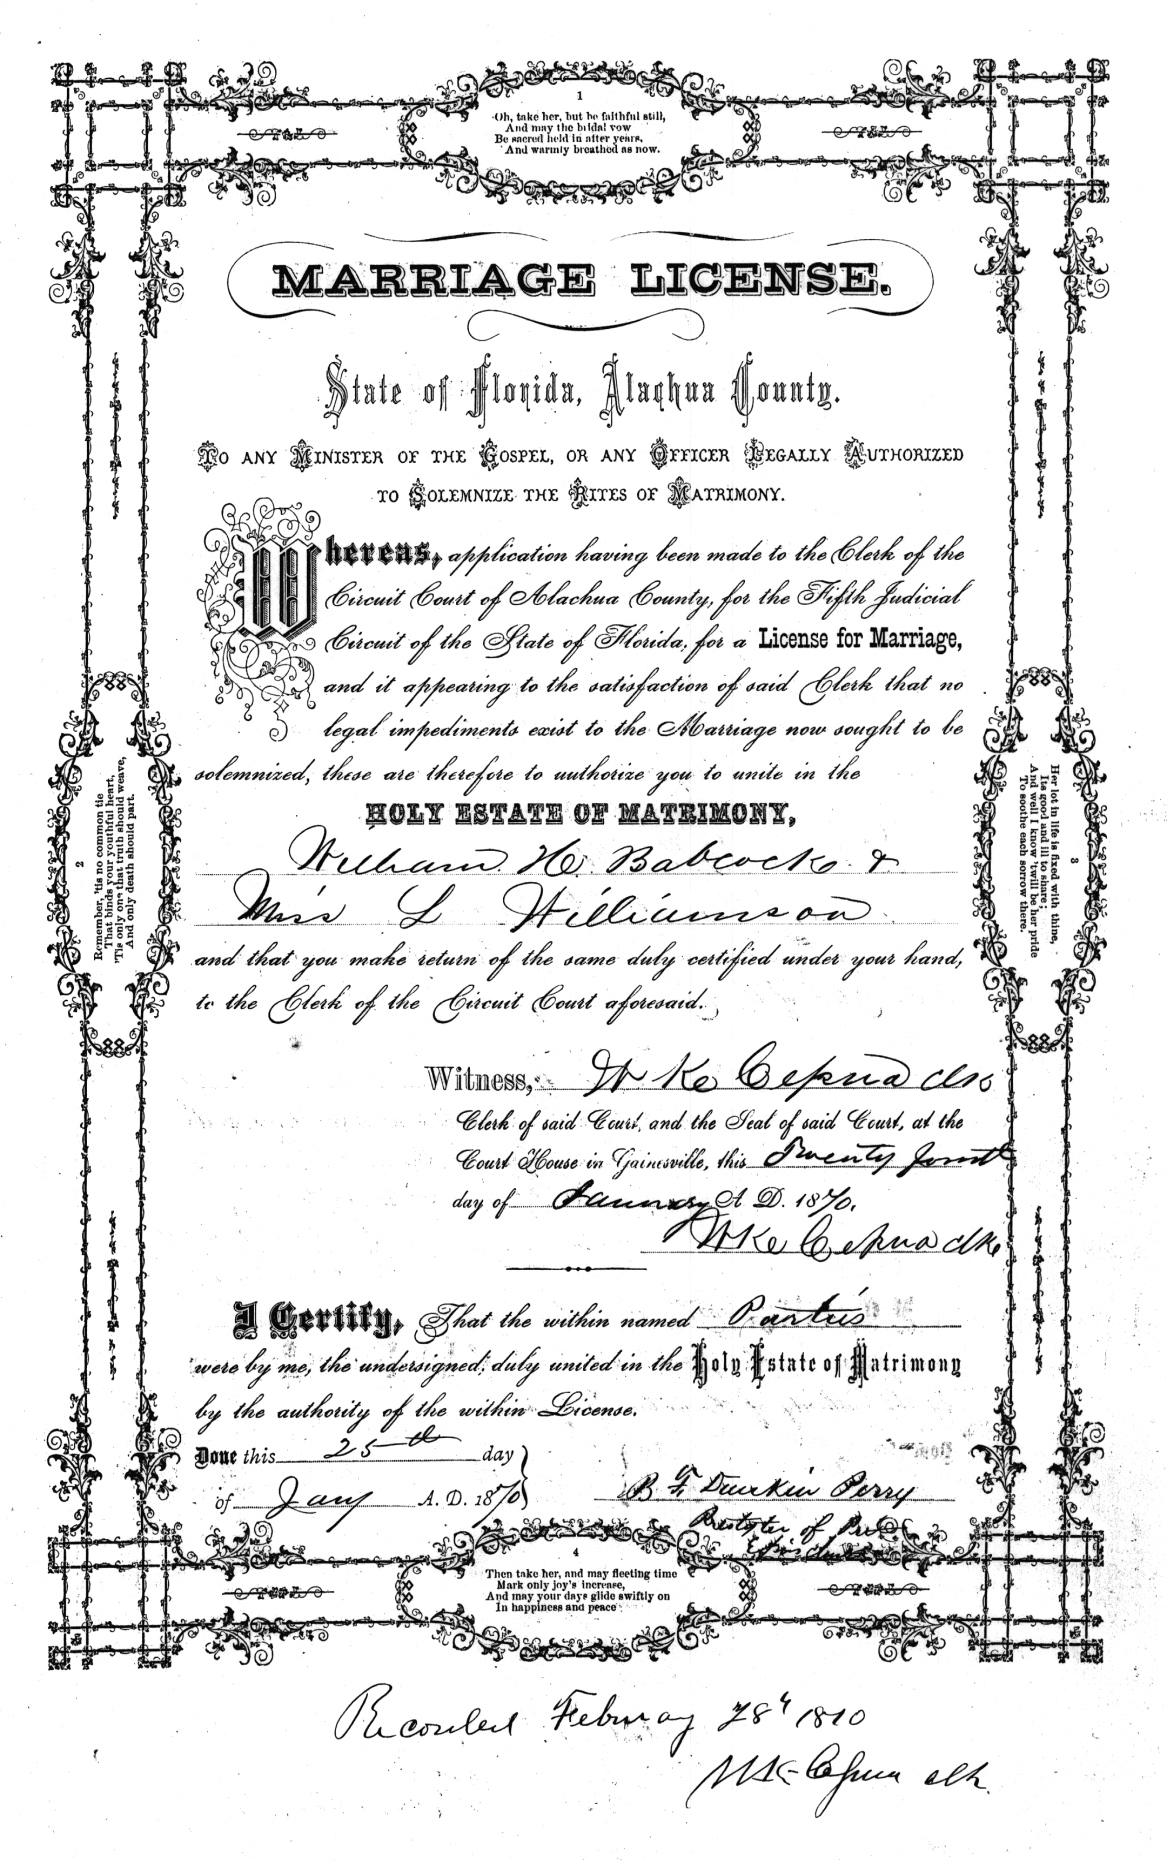 1
Oh, take her, but be faithful still,
And may the bridal vow
Be sacred held in after years,
And warmly breathed as now.
MARRIAGE LICENSE.
State of Florida, Alachua County.
TO ANY MINISTER OF THE GOSPEL, OR ANY OFFICER LEGALLY AUTHORIZED
TO SOLEMNIZE THE RITES OF MATRIMONY.
Whereas, application having been made to the Clerk of the
Circuit Court of Alachua County, for the Fifth Judicial
Circuit of the State of Florida, for a License for Marriage,
and it appearing to the satisfaction of said Clerk that no
legal impediments exist to the Marriage now sought to be
solemnized, these are therefore to authorize you to unite in the
HOLY ESTATE OF MATRIMONY,
William H. Babcock &
Miss L Williamson
and that you make return of the same duly certified under your hand,
to the Clerk of the Circuit Court aforesaid.
2
Remember, 'tis no common tie
That binds your youthful heart,
'Tis only one that truth should weave,
And only death should part.
3
Her lot in life is fixed with thine,
Its good and ill to share;
And well I know 'twill be her pride
To soothe each sorrow there.
Witness,
Clerk of said Court, and the Seal of said Court, at the
Court House in Gainesville, this Twenty
day of January A. D. 1870.
I Certify, That the within named Parties
were by me, the undersigned, duly united in the Holy Estate of Matrimony
by the authority of the within License.
Done this 25th day
of Jany A. D. 1870
B F Dunkin Perry
Presbyter of
4
Then take her, and may fleeting time
Mark only joy's increase,
And may your days glide swiftly on
In happiness and peace
Recorded February 28th 1870